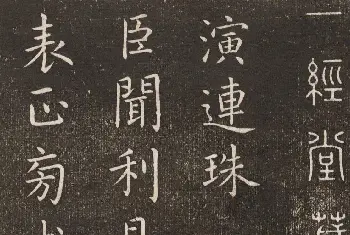 一經堂
演連珠
臣聞利
表正